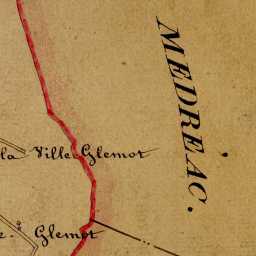 MEDRÉAC.
la Ville Glemot
e. Glemot